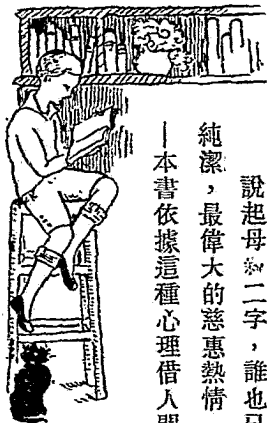 說起母二字，誰也
純潔，最偉大的慈惠熱情
—本書依據這種心理借人